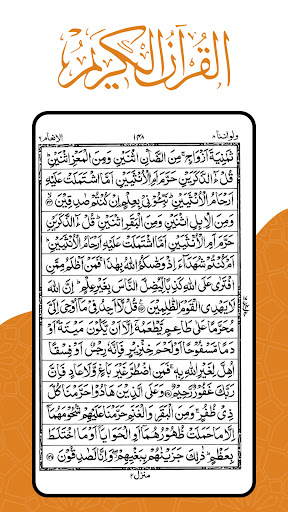 القرآن الكريم
ولواننا ٨ ١٣٨ الانعام ٦
ثَمٰنِيَةَ اَزْوَاجٍ ۚ مِنَ الضَّاْنِ اثْنَيْنِ وَمِنَ الْمَعْزِ اثْنَيْنِ ؕ
قُلْ ءٰٓالذَّكَرَيْنِ حَرَّمَ اَمِ الْاُنْثَيَيْنِ اَمَّا اشْتَمَلَتْ عَلَيْهِ
اَرْحَامُ الْاُنْثَيَيْنِ ؕ نَبِّـُٔوْنِيْ بِعِلْمٍ اِنْ كُنْتُمْ صٰدِقِيْنَ
وَمِنَ الْاِبِلِ اثْنَيْنِ وَمِنَ الْبَقَرِ اثْنَيْنِ ؕ قُلْ ءٰٓالذَّكَرَيْنِ
حَرَّمَ اَمِ الْاُنْثَيَيْنِ اَمَّا اشْتَمَلَتْ عَلَيْهِ اَرْحَامُ الْاُنْثَيَيْنِ ؕ
اَمْ كُنْتُمْ شُهَدَآءَ اِذْ وَصّٰىكُمُ اللّٰهُ بِهٰذَا ۚ فَمَنْ اَظْلَمُ مِمَّنِ
افْتَرٰى عَلَى اللّٰهِ كَذِبًا لِّيُضِلَّ النَّاسَ بِغَيْرِ عِلْمٍ ؕ اِنَّ اللّٰهَ
لَا يَهْدِي الْقَوْمَ الظّٰلِمِيْنَ قُلْ لَّاۤ اَجِدُ فِيْ مَاۤ اُوْحِيَ اِلَيَّ
مُحَرَّمًا عَلٰى طَاعِمٍ يَّطْعَمُهٗۤ اِلَّاۤ اَنْ يَّكُوْنَ مَيْتَةً اَوْ
دَمًا مَّسْفُوْحًا اَوْ لَحْمَ خِنْزِيْرٍ فَاِنَّهٗ رِجْسٌ اَوْ فِسْقًا
اُهِلَّ لِغَيْرِ اللّٰهِ بِهٖ ۚ فَمَنِ اضْطُرَّ غَيْرَ بَاغٍ وَّلَا عَادٍ فَاِنَّ
رَبَّكَ غَفُوْرٌ رَّحِيْمٌ وَعَلَى الَّذِيْنَ هَادُوْا حَرَّمْنَا كُلَّ
ذِيْ ظُفُرٍ ۚ وَمِنَ الْبَقَرِ وَالْغَنَمِ حَرَّمْنَا عَلَيْهِمْ شُحُوْمَهُمَاۤ
اِلَّا مَا حَمَلَتْ ظُهُوْرُهُمَاۤ اَوِ الْحَوَايَاۤ اَوْ مَا اخْتَلَطَ
بِعَظْمٍ ؕ ذٰلِكَ جَزَيْنٰهُمْ بِبَغْيِهِمْ ۖ وَاِنَّا لَصٰدِقُوْنَ
منزل ٢